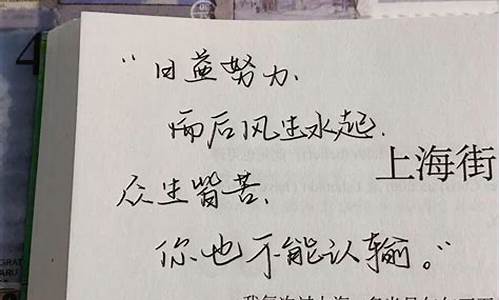 “日益努力、
而后风生水起.
众生皆苦、
你也不能认输。”
上海街
4
GRAT
ARU